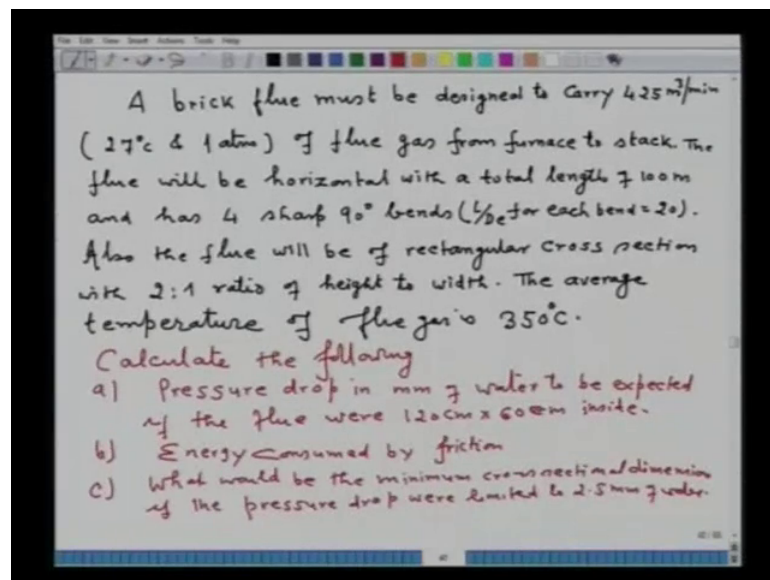 File Edit View Insert Actions Tools Help
A brick flue must be designed to Carry 425 m³/min
( 27°C & 1 atm ) of flue gas from furnace to stack. The
flue will be horizontal with a total length of 100m
and has 4 sharp 90° bends ( L/De for each bend = 20 ).
Also the flue will be of rectangular cross section
with 2:1 ratio of height to width. The average
temperature of flue gas is 350°C.
Calculate the following
a) Pressure drop in mm of water to be expected
if the flue were 120cm x 60cm inside.
b) Energy consumed by friction
c) What would be the minimum cross sectional dimension
if the pressure drop were limited to 2.5 mm of water.